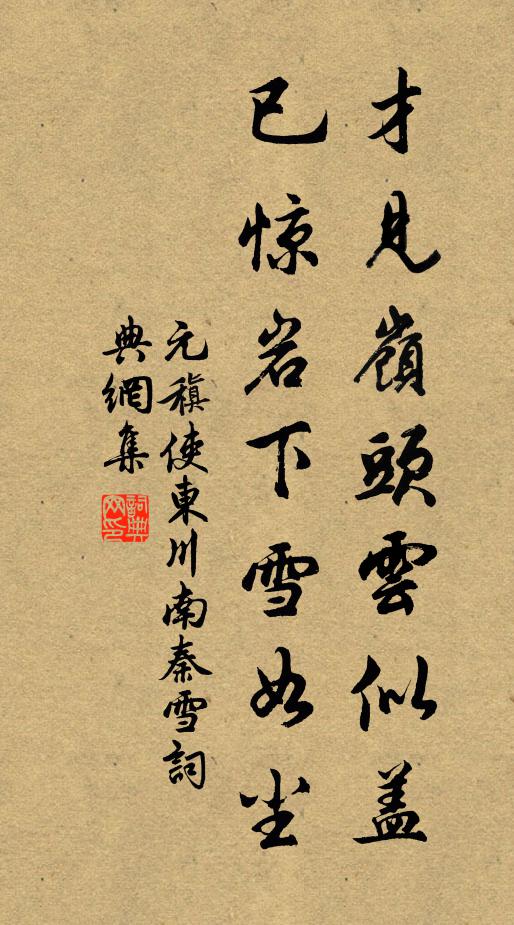 才見嶺頭雲似盖
已惊岩下雪如尘
元稹使東川南秦雪詞
典網集
詞典网印